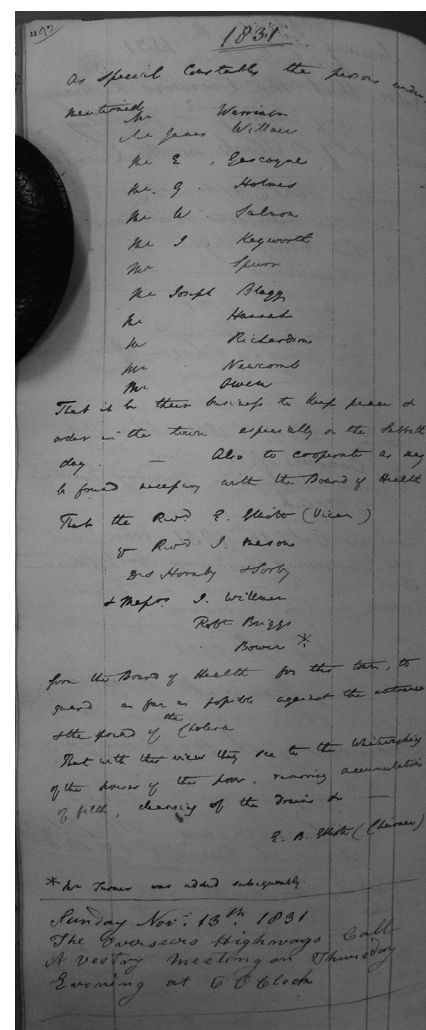 1831
As special Constables the persons under
mentioned
Mr Warriston
Mr James Willmer
Mr E. Gascoyne
Mr. G. Holmes
Mr W. Salmon
Mr J. Kegworth
Mr Spurr
Mr Joseph Blagg
Mr Hannah
Mr Richardson
Mr Newcomb
Mr Owen
That it be their business to keep peace &
order in the town especially on the Sabbath
day. — Also to cooperate as may
be found necessary with the Board of Health
That the Revd. E. Elliott (Vicar)
& Revd J. Mason
Drs Hornby & Sorby
& Messrs J. Willmer
Robt Briggs
Bower *
form the Board of Health for this town, to
guard as far as possible against the entrance
& the spread of the Cholera
That with this view they see to the Whitewashing
of the houses of the poor, removing accumulations
of filth, cleansing of the drains &c —
E. B. Elliott (Chairman)
* Mr Turner was added subsequently
Sunday Novr. 13th 1831
The Overseers Highways Call
A vestry Meeting on Thursday
Evening at 6 O Clock